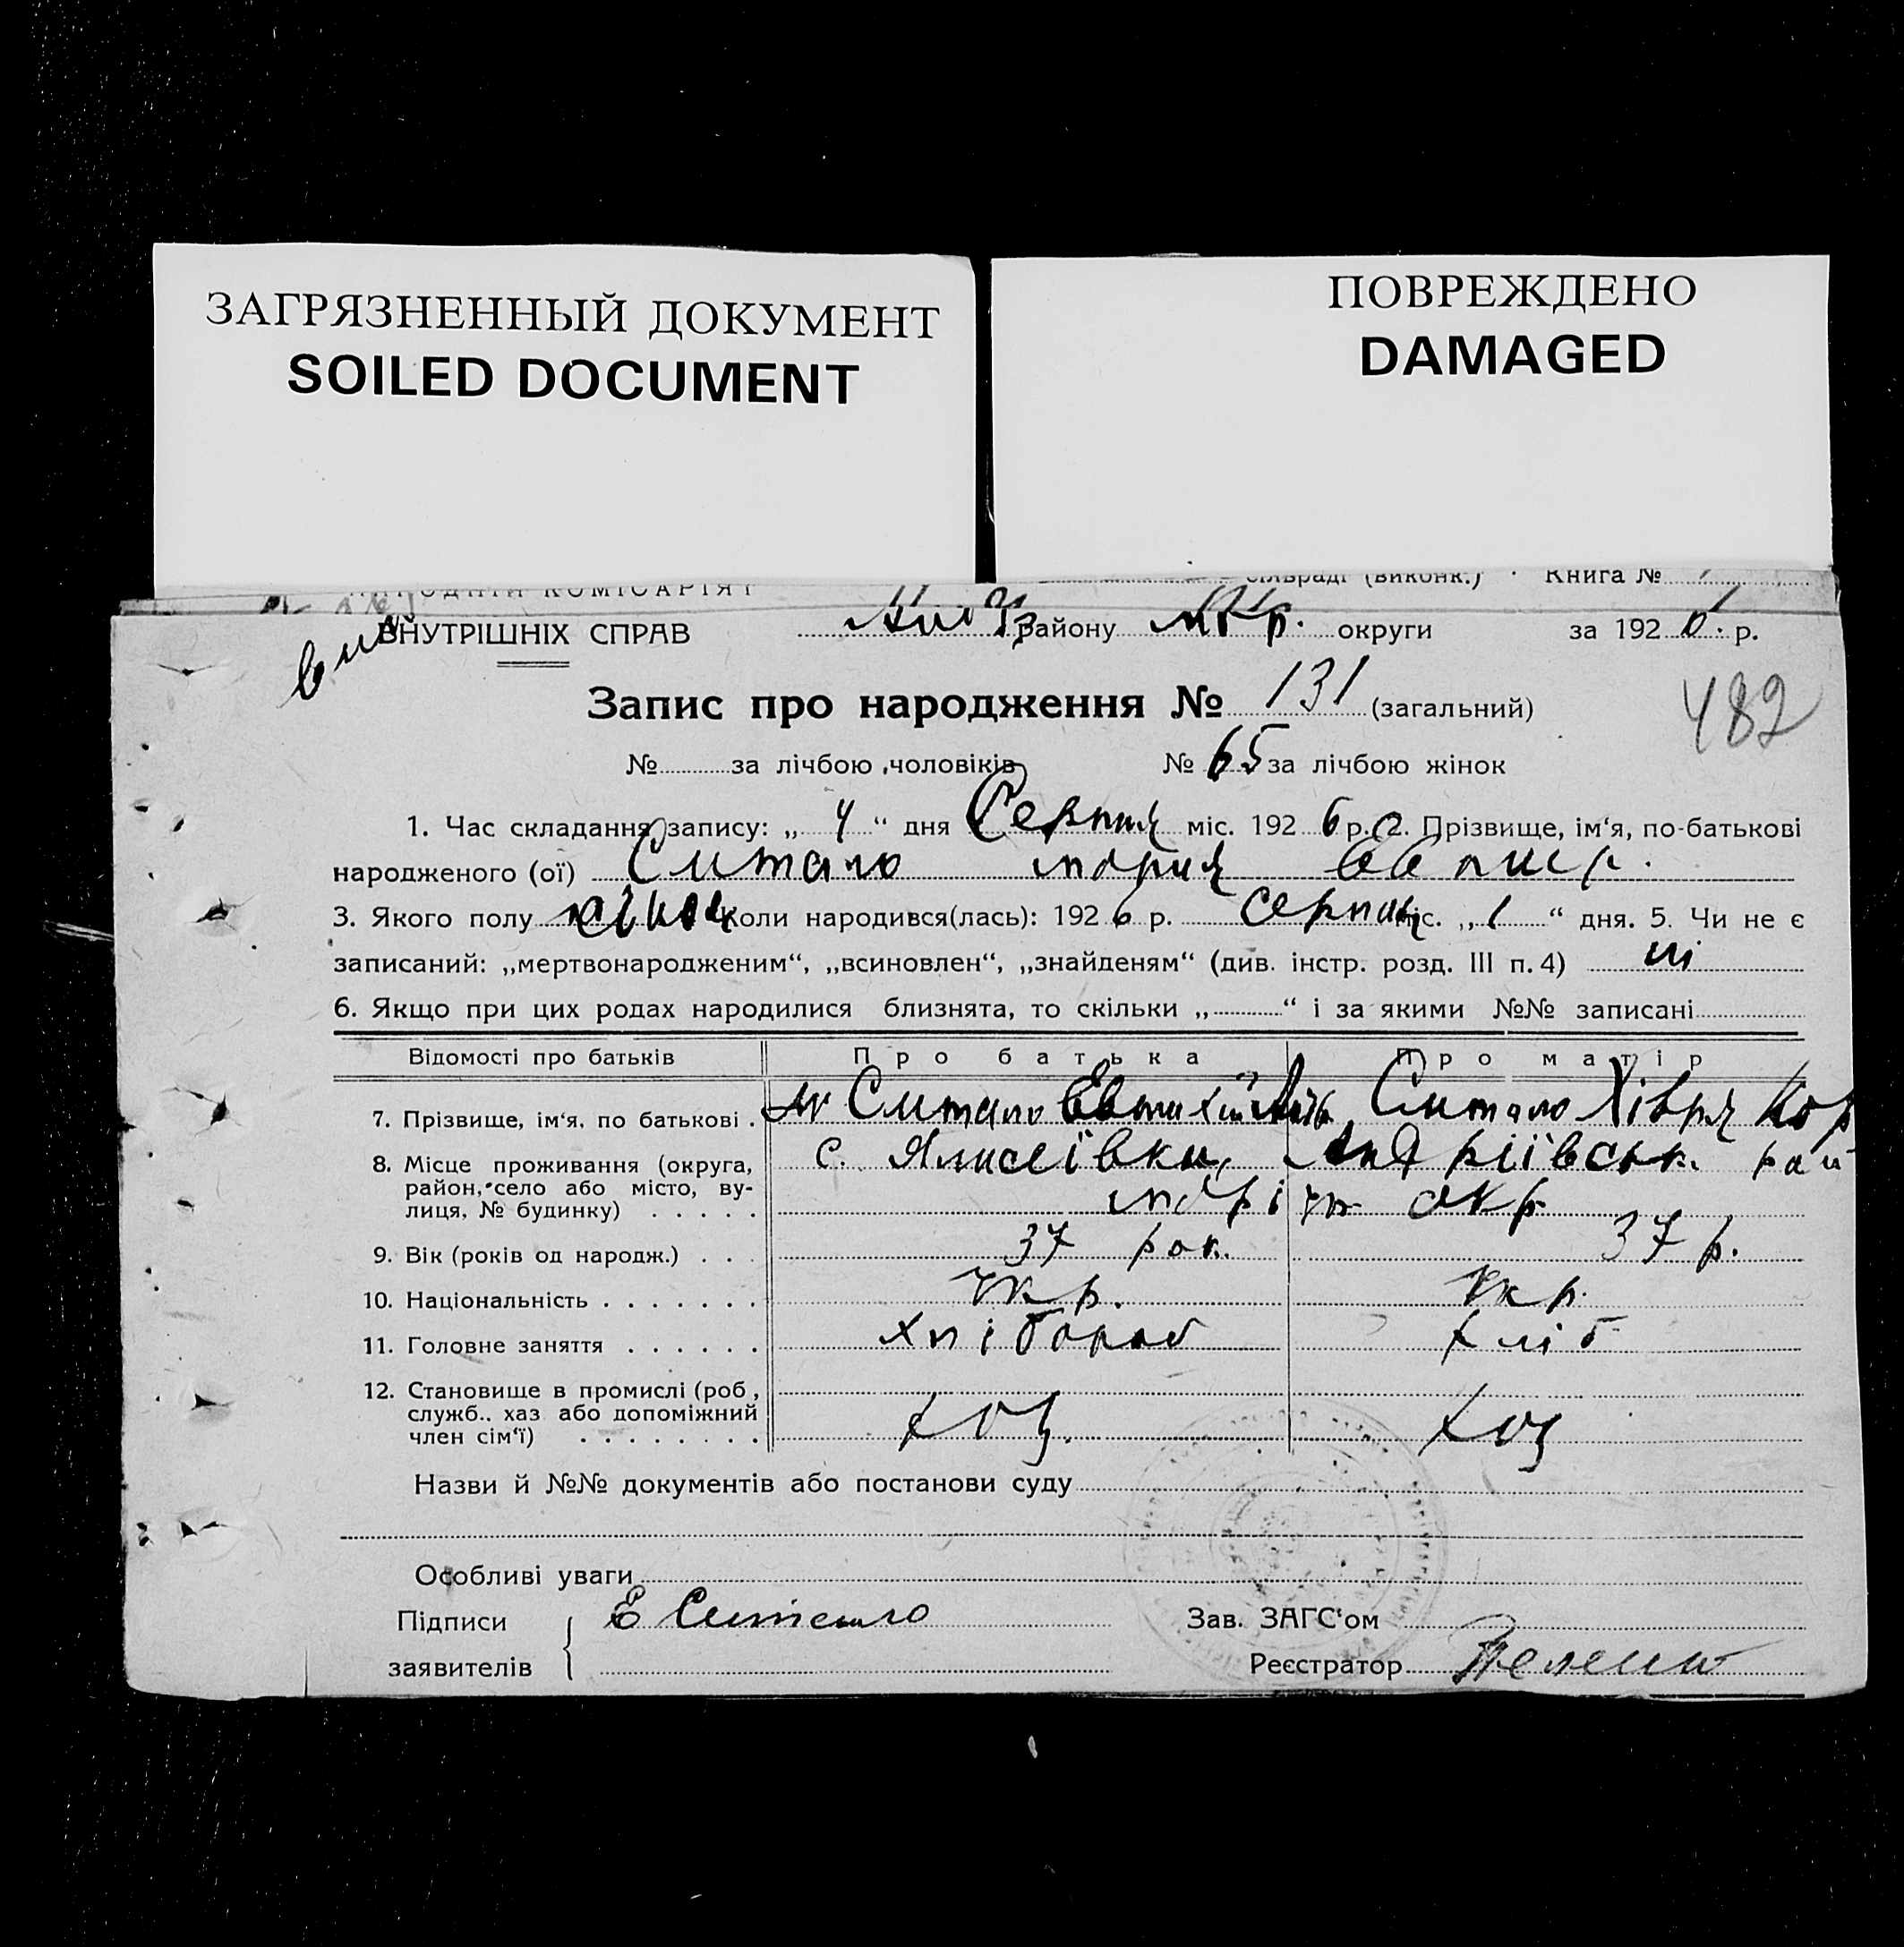 ЗАГРЯЗНЕННЫЙ ДОКУМЕНТ
SOILED DOCUMENT
ПОВРЕЖДЕНО
DAMAGED
НАРОДНІЙ КОМІСАРІЯТ
сільраді (виконк.) Книга №
ВНУТРІШНІХ СПРАВ району округи за 1926 р.
Запис про народження № 131 (загальний)
482
№ за лічбою чоловіків № 65 за лічбою жінок
1. Час складання запису: „ 4 “ дня Серпня міс. 1926 р. 2. Прізвище, ім‘я, по-батькові
народженого (ої) Ситало Мария
3. Якого полу Коли народився(лась): 1926 р. серпня міс. „ 1 “ дня. 5. Чи не є
записаний: „мертвонародженим“, „всиновлен“, „знайденям“ (див. інстр. розд. III п. 4) ні
6. Якщо при цих родах народилися близнята, то скільки „ “ і за якими №№ записані
Відомості про батьків Про батька Про матір
7. Прізвище, ім‘я, по батькові . Ситало Евтихий Ситало Хівря Кор
8. Місце проживання (округа, с. Андріївськ. рай
район, село або місто, ву-
лиця, № будинку) . . . . . Марі окр.
9. Вік (років од народж.) . . . 37 рок. 37 р.
10. Національність . . . . . . . Укр. Укр.
11. Головне заняття . . . . . . хлібороб хліб
12. Становище в промислі (роб,
служб.. хаз або допоміжний
член сім‘ї) . . . . . . . . хоз. хоз
Назви й №№ документів або постанови суду
Особливі уваги
Підписи Е Ситало Зав. ЗАГС‘ом
заявителів Реєстратор